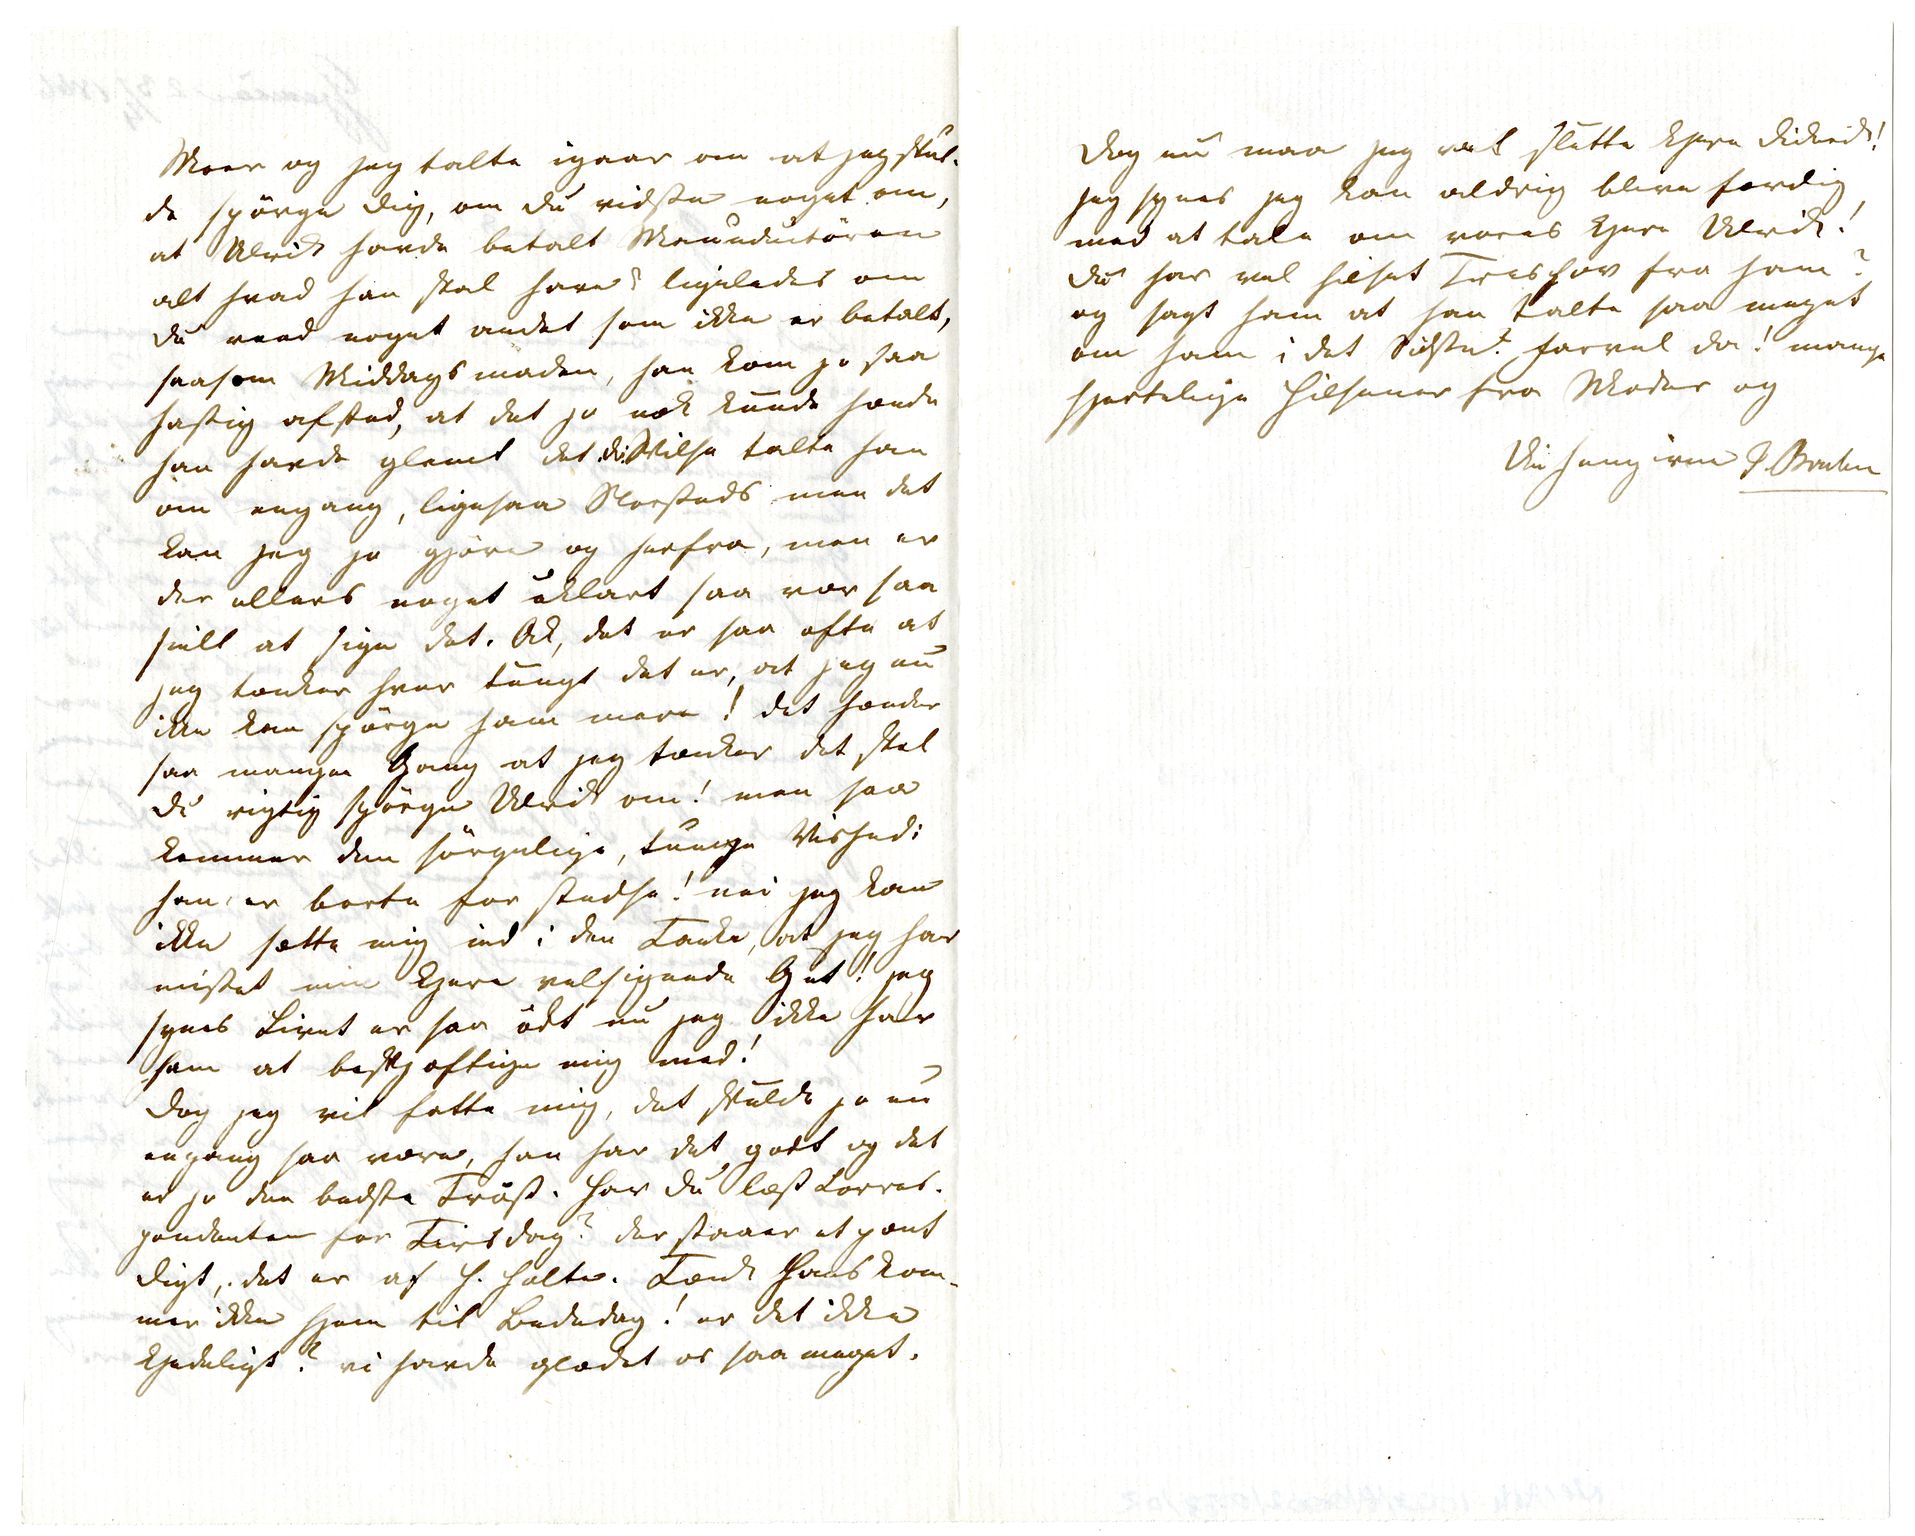 Moer og jeg talte igaar om at jeg skul-
de spörge dig, om du vidste noget om,
at Ulrik havde betalt Manuducttören
alt hvad han skal have? ligeledes om
du veed noget andet som ikke er betalt,
saasom Middagsmaden, han kom jo saa
hastig afsted, at det jo nok kunde hænde
han havde glemt det. talte han
om engang, ligesaa men det
kan jeg jo gjöre og herfra, men er
der ellers noget uklart saa vær saa
snill at sige det. Ak, det er saa ofte at
jeg tænker hvor tungt det er, at jeg nu
ikke kan spörge ham mere! det hænder
saa mangen Gang at jeg tænker det skal
du rigtig spörge Ulrik om! men saa
kommer den sörgelige, tunge Vished:
han er borte for stedse! nei jeg kan
ikke sætte mig ind i den Tanke, at jeg har
mistet min kjere velsignede Gut! jeg
synes Livet er saa ödt nu jeg ikke har
ham at beskjæftige mig med!
Dog jeg vil fatte mig, det skulde jo nu
engang saa være, han har det godt og det
er jo den bedste Tröst. Har du læst Corres-
pondenten for Tirsdag? der staaer et pent
Digt, det er af H. Holte. Tænk Hans kom-
mer ikke hjem til Bededag! er det ikke
kjedeligt? vi havde glædet os saa meget.
Dog nu maa jeg vel slutte kjere Didrik!
jeg synes jeg kan aldrig blive færdig
med at tale om vores kjere Ulrik!
du har vel hilset Treshov fra ham?
og sagt ham at han talte saa meget
om ham i det Sidste? farvel da! mange
hjertelige Hilsener fra Moder og
Din hengivne